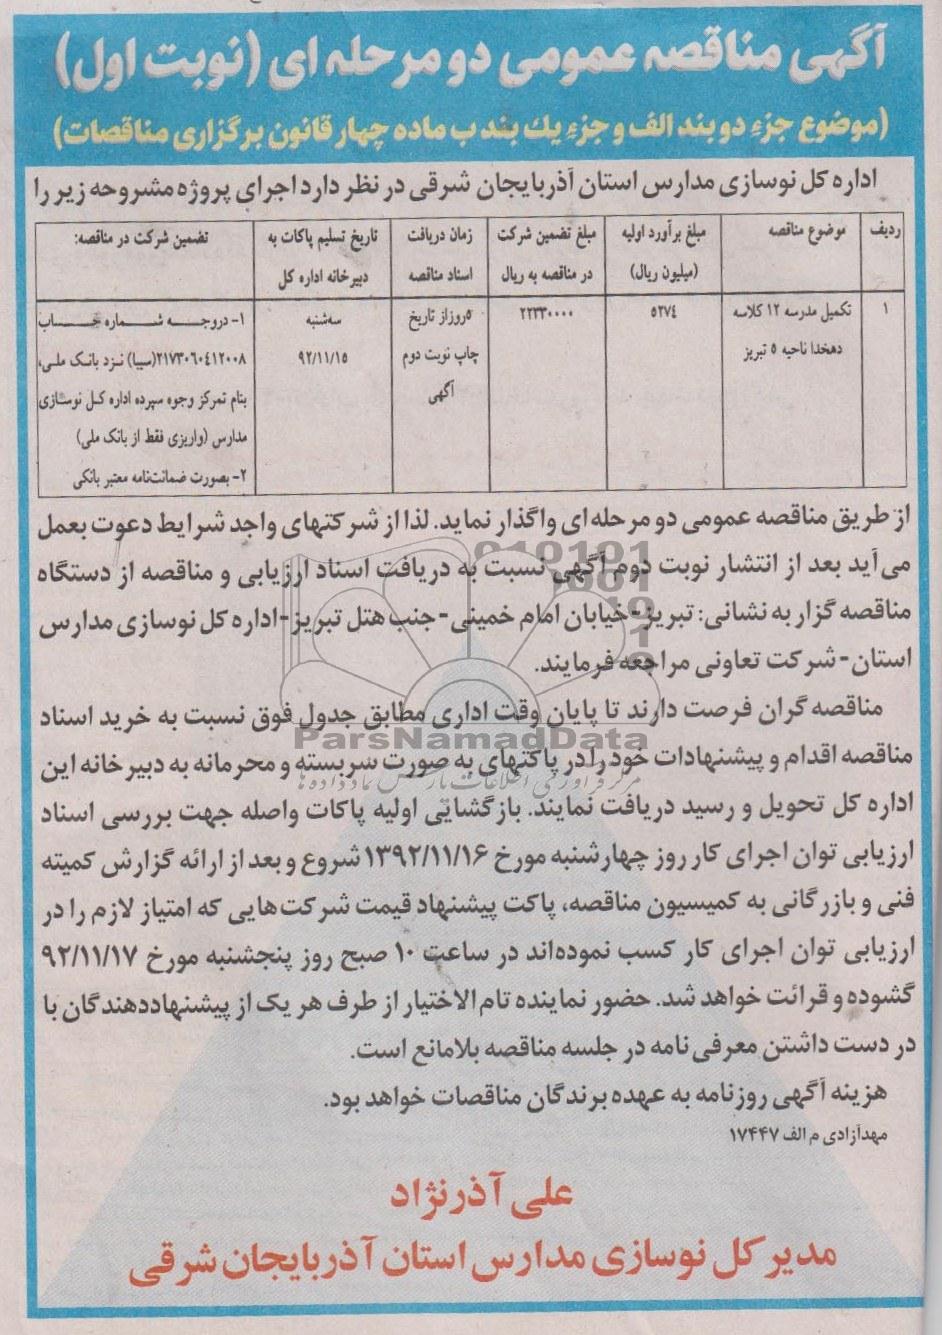 آگهی مناقصه عمومی دو مرحله ای (نوبت اول)
(موضوع جزء دو بند الف و جزء یك بند ب ماده چهار قانون برگزاری مناقصات)
اداره کل نوسازی مدارس استان آذربایجان شرقی در نظر دارد اجرای پروژه مشروحه زیر را
ردیف
موضوع مناقصه
مبلغ برآورد اولیه
(میلیون ریال)
مبلغ تضمین شرکت
در مناقصه به ریال
زمان دریافت
اسناد مناقصه
تاریخ تسلیم پاکات به
دبیرخانه اداره کل
تضمین شرکت در مناقصه:
۱
تکمیل مدرسه ۱۲ کلاسه
دهخدا ناحیه ۵ تبریز
۵۲۷۴
۲۲۳۳۰۰۰۰
۵روزاز تاریخ
چاپ نوبت دوم
آگهی
سه‌شنبه
۹۲/۱۱/۱۵
۱- دروجه شماره حساب
۲۱۷۳۰۶۰۴۱۲۰۰۸(سیبا) نزد بانک ملی،
بنام تمرکز وجوه سپرده اداره کل نوسازی
مدارس (واریزی فقط از بانک ملی)
۲- بصورت ضمانت‌نامه معتبر بانکی
از طریق مناقصه عمومی دو مرحله‌ای واگذار نماید. لذا از شرکتهای واجد شرایط دعوت بعمل
می‌آید بعد از انتشار نوبت دوم آگهی نسبت به دریافت اسناد ارزیابی و مناقصه از دستگاه
مناقصه گزار به نشانی: تبریز-خیابان امام خمینی- جنب هتل تبریز-اداره کل نوسازی مدارس
استان-شرکت تعاونی مراجعه فرمایند.
مناقصه گران فرصت دارند تا پایان وقت اداری مطابق جدول فوق نسبت به خرید اسناد
ParsNamadData
مناقصه اقدام و پیشنهادات خود را در پاکتهای به صورت سربسته و محرمانه به دبیرخانه این
مرکز فرآوری اطلاعات پارس نماد داده ها
اداره کل تحویل و رسید دریافت نمایند. بازگشایی اولیه پاکات واصله جهت بررسی اسناد
ارزیابی توان اجرای کار روز چهارشنبه مورخ ۱۳۹۲/۱۱/۱۶ شروع و بعد از ارائه گزارش کمیته
فنی و بازرگانی به کمیسیون مناقصه، پاکت پیشنهاد قیمت شرکت‌هایی که امتیاز لازم را در
ارزیابی توان اجرای کار کسب نموده‌اند در ساعت ۱۰ صبح روز پنجشنبه مورخ ۹۲/۱۱/۱۷
گشوده و قرائت خواهد شد. حضور نماینده تام‌الاختیار از طرف هر یک از پیشنهاددهندگان با
در دست داشتن معرفی نامه در جلسه مناقصه بلامانع است.
هزینه آگهی روزنامه به عهده برندگان مناقصات خواهد بود.
مهدآزادی م الف ۱۷۴۴۷
علی آذرنژاد
مدیر کل نوسازی مدارس استان آذربایجان شرقی